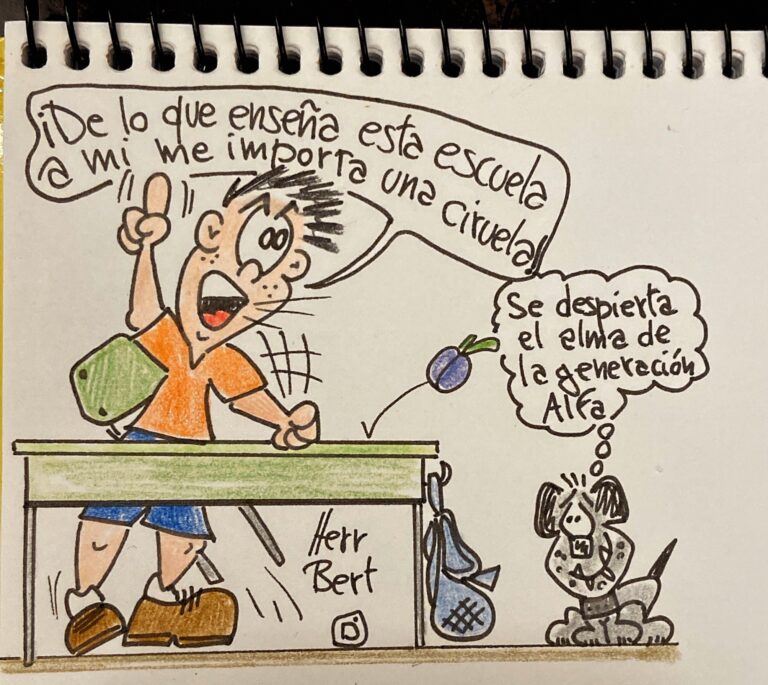 ¡De lo que enseña esta escuela
a mi me importa una ciruela!!
Se despierta
el alma de
la generación
Alfa.
Herr
Bert